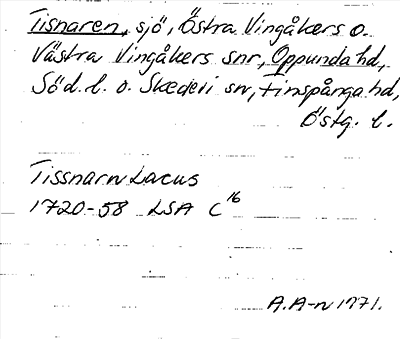 Tisnaren, sjö, Östra Vingåkers o.
Västra Vingåkers snr, Oppunda hd,
Söd. l. o. Skedevi sn, Finspånga hd,
Östg. l.
Tissnarn Lacus
1720-58 LSA C16
A.A-n 1971.